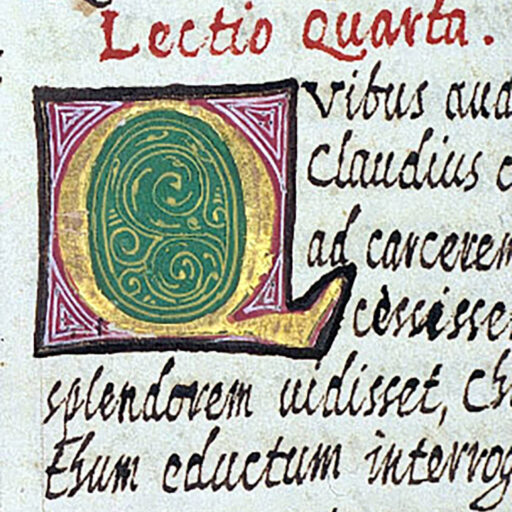 Lectio Quarta.
Quibus aud
Claudius c
ad carcerem
cèssisse
splendorem uidisset, Ch
thum eductum interrog